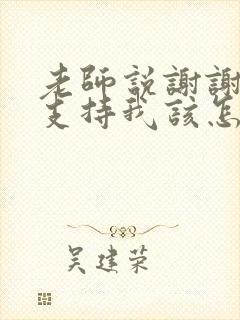 老師說謝謝
支持我該怎
吴建荣